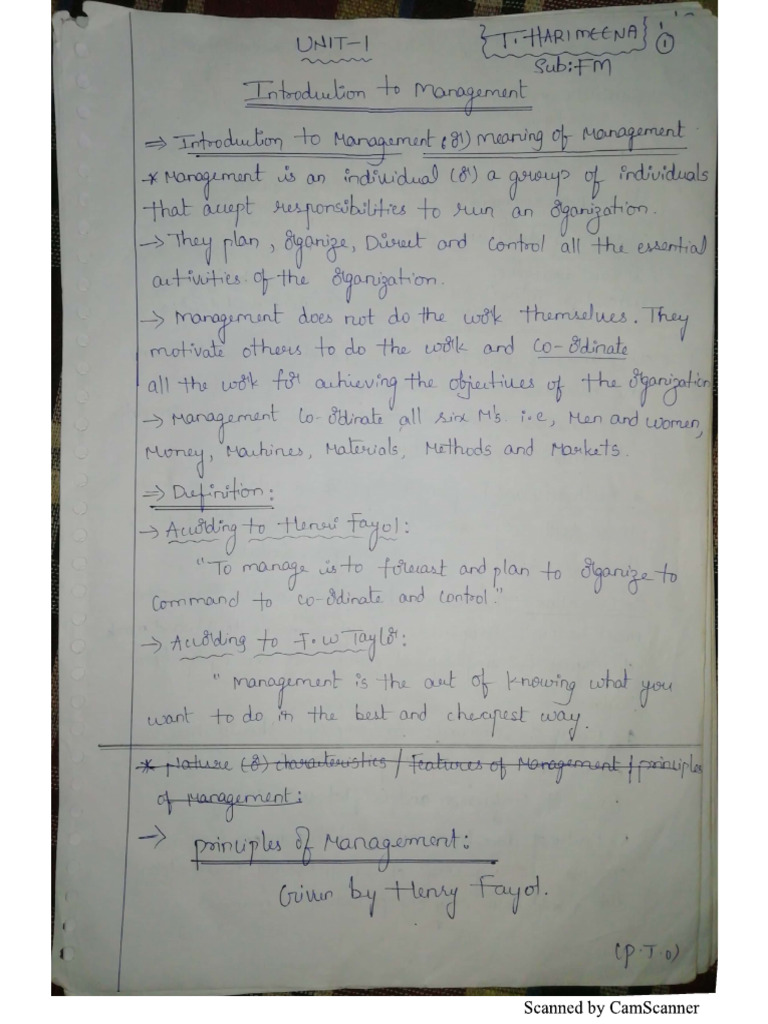 UNIT-1
T. HARIMEENA ①
Sub: FM
Introduction to Management
⇒ Introduction to Management (or) Meaning of Management
* Management is an individual (or) a group of individuals
that accept responsibilities to run an organization.
→ They plan, organize, Direct and control all the essential
activities of the organization.
→ Management does not do the work themselves. They
motivate others to do the work and co-ordinate
all the work for achieving the objectives of the organization
→ Management Co-ordinate all six M's. i.e, Men and women,
Money, Machines, Materials, Methods and Markets.
⇒ Definition:
→ According to Henri Fayol:
"To manage is to forecast and plan to organize to
command to co-ordinate and control."
→ According to F.W Taylor:
"Management is the art of knowing what you
want to do in the best and cheapest way.
* Nature (or) characteristics / Features of Management / principles
of Management:
→ principles of Management:
Given by Henry Fayol.
(P.T.O)
Scanned by CamScanner